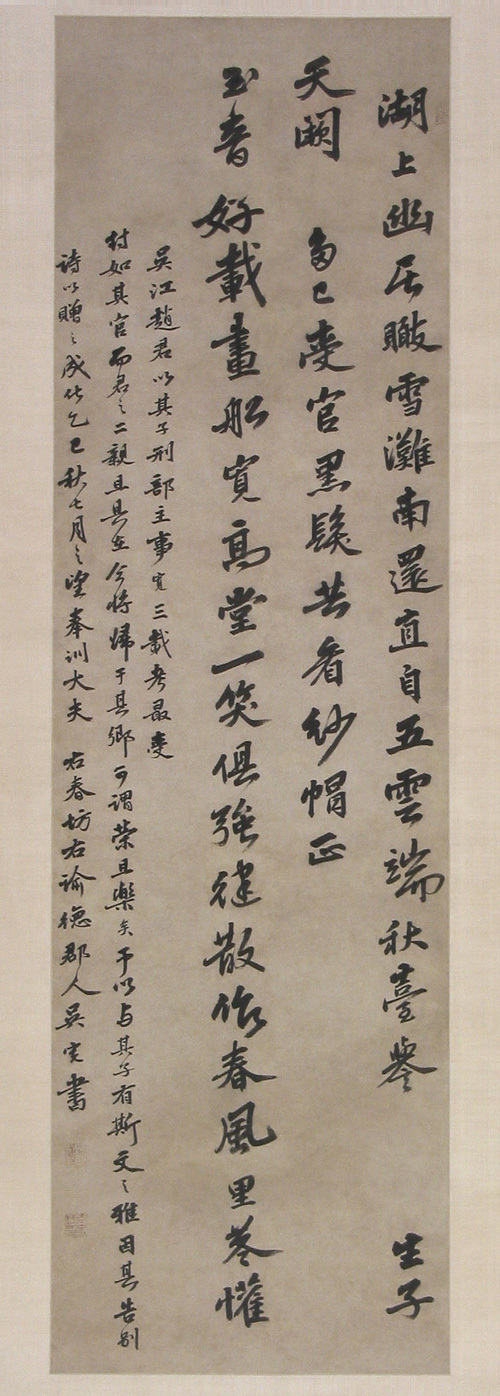 湖上幽居瞰雪灘南還直自五雲端秋臺 生子
天闕 已受官黑髮共看紗帽正
玉音好載畫船寬高堂一笑俱強健散作春風里巷懽
吳江趙君以其子刑部主事寬三載考最受
封如其官而君之二親且具在今將歸于其鄉可謂榮且樂矣予以與其子有斯文之雅因其告別
詩以贈之成化乙巳秋七月之望奉訓大夫 右春坊右諭德郡人吳寬書